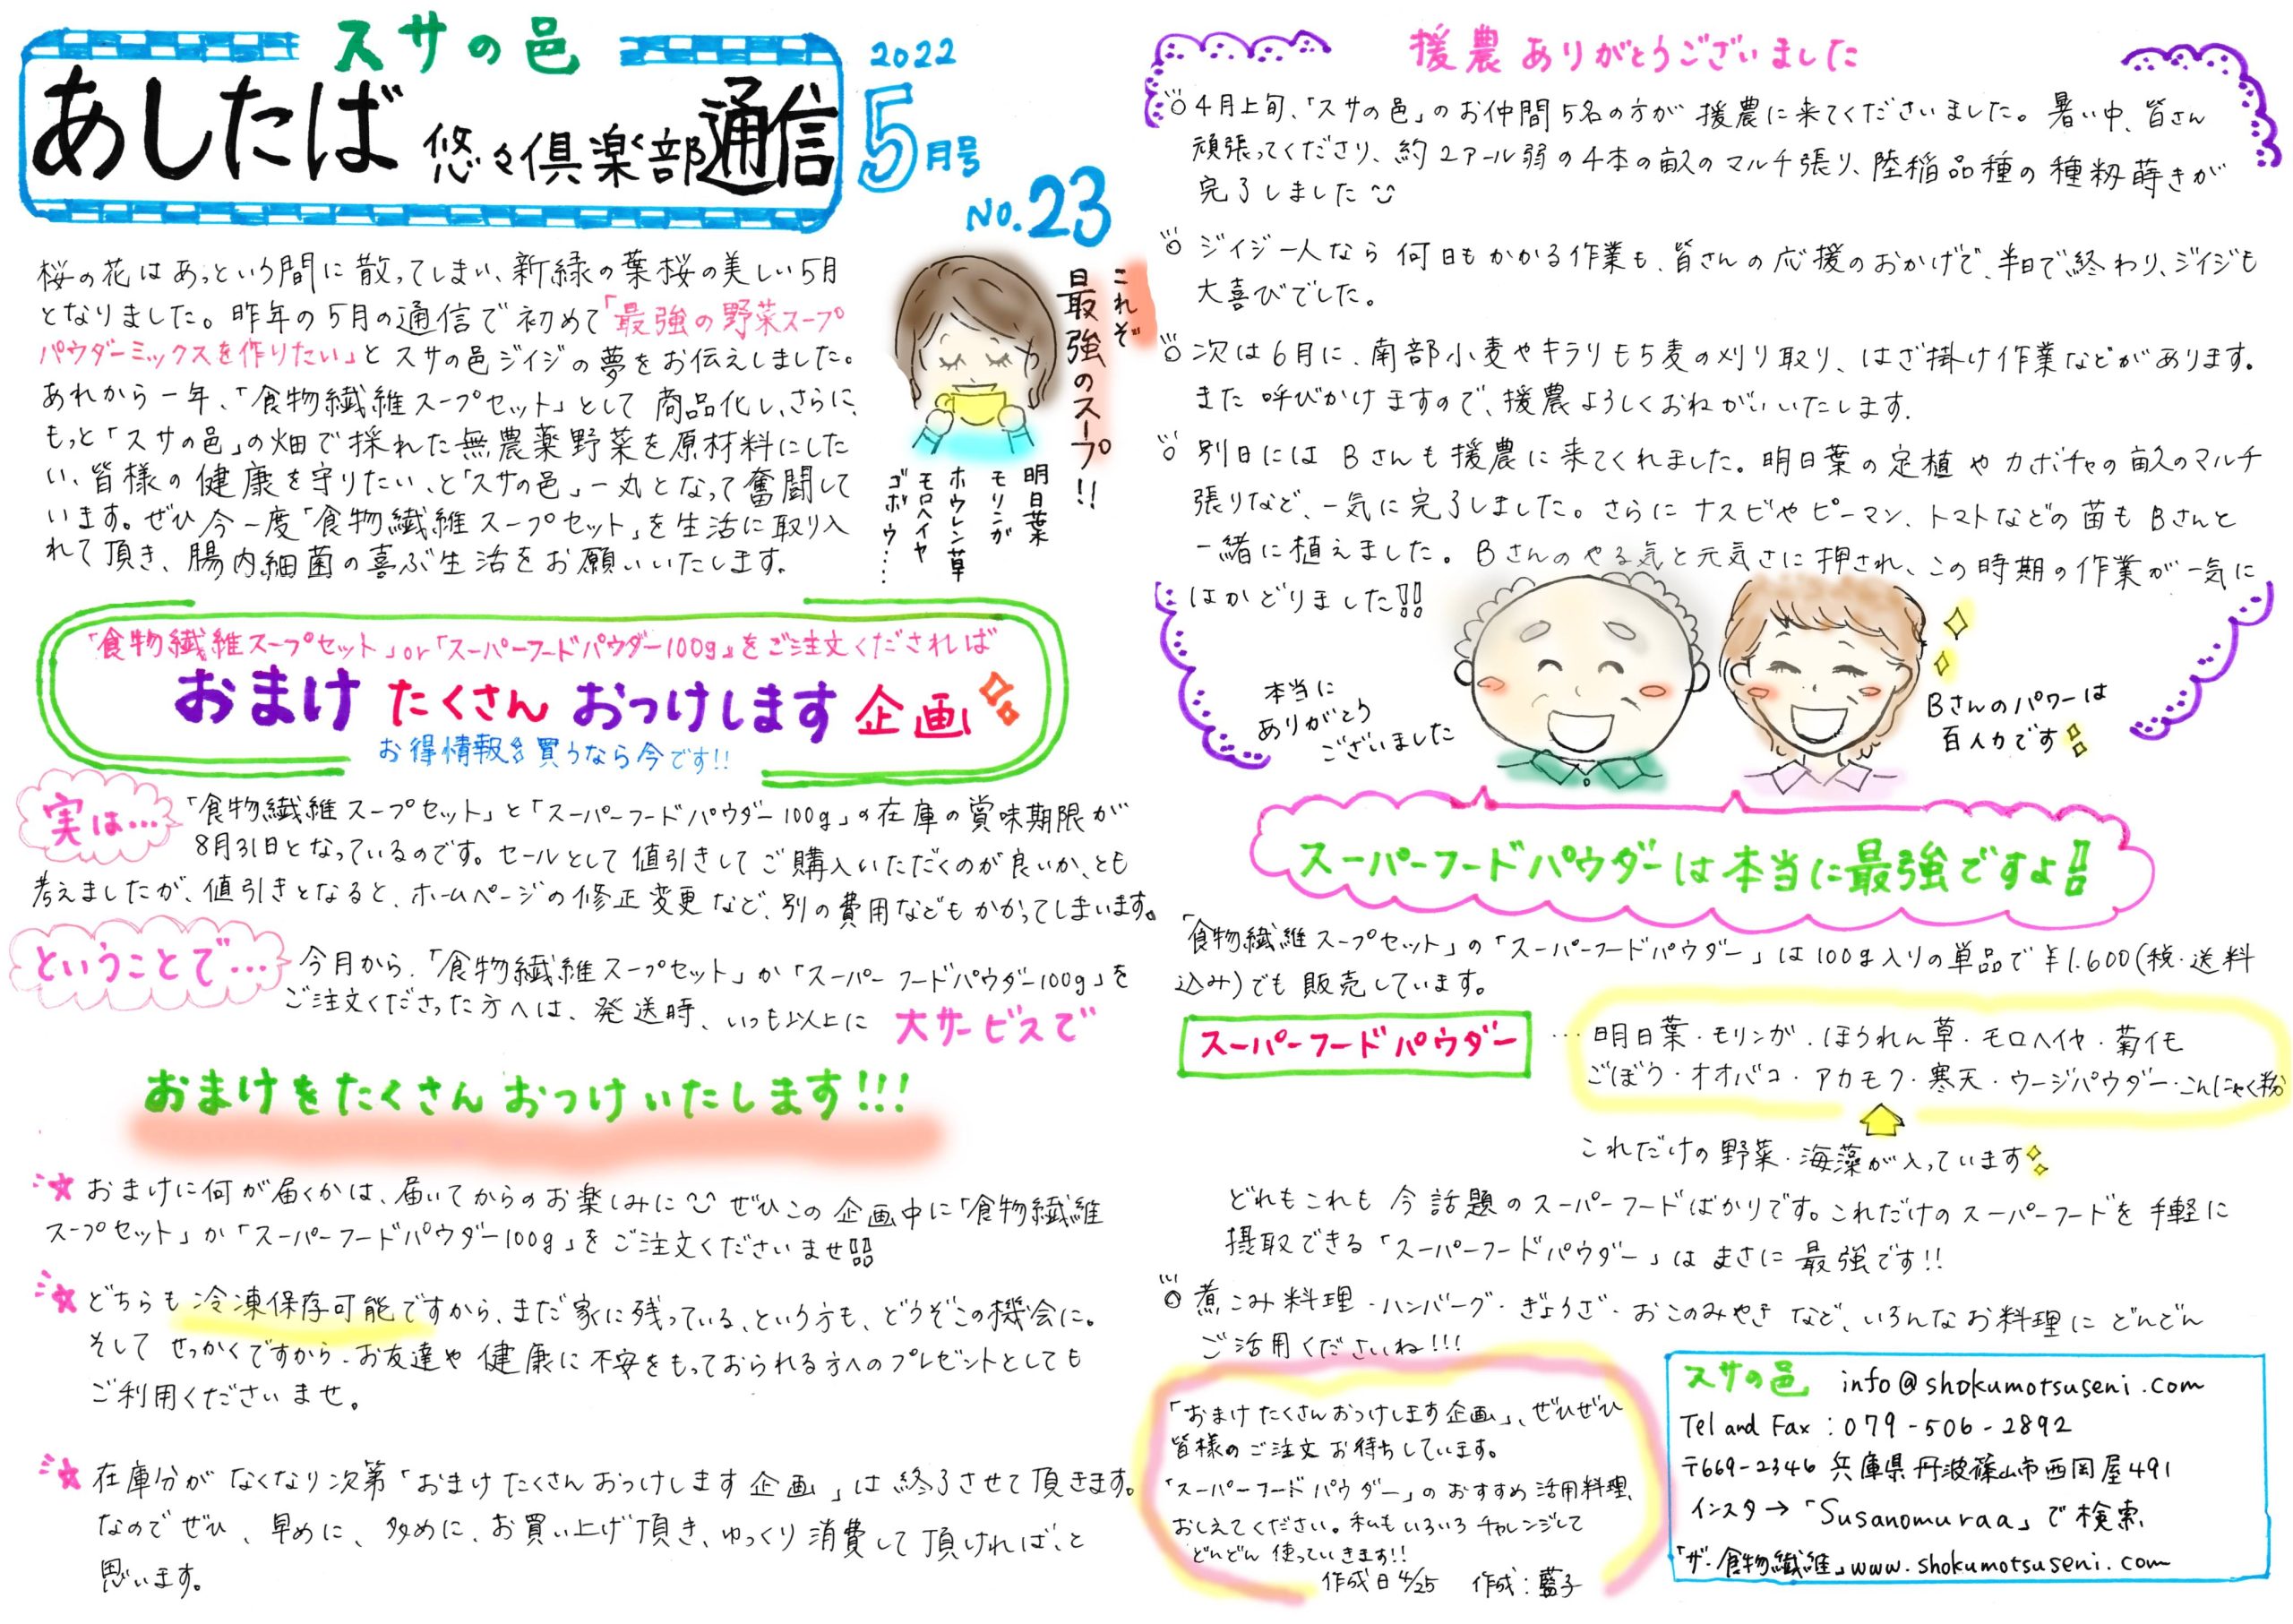 スサの邑
あしたば 悠々倶楽部 通信
2022
5月号
No.23
桜の花はあっという間に散ってしまい、新緑の葉桜の美しい5月
となりました。昨年の5月の通信で初めて「最強の野菜スープ
パウダーミックスを作りたい」とスサの邑ジイジの夢をお伝えしました。
あれから一年、「食物繊維スープセット」として商品化し、さらに、
もっと「スサの邑」の畑で採れた無農薬野菜を原材料にした
い、皆様の健康を守りたい、と「スサの邑」一丸となって奮闘して
います。ぜひ今一度「食物繊維スープセット」を生活に取り入
れて頂き、腸内細菌の喜ぶ生活をお願いいたします。
これぞ
最強のスープ!!
明日葉
モリンガ
ホウレン草
モロヘイヤ
ゴボウ……
「食物繊維スープセット」or「スーパーフードパウダー100g」をご注文くだされば
おまけ たくさん おつけします 企画
お得情報 買うなら今です!!
実は…
「食物繊維スープセット」と「スーパーフードパウダー100g」の在庫の賞味期限が
8月31日となっているのです。セールとして値引きしてご購入いただくのが良いか、とも
考えましたが、値引きとなると、ホームページの修正変更など、別の費用などもかかってしまいます。
ということで…
今月から、「食物繊維スープセット」か「スーパーフードパウダー100g」を
ご注文くださった方へは、発送時、いつも以上に 大サービスで
おまけをたくさん おつけいたします!!!
☆おまけに何が届くかは、届いてからのお楽しみに ぜひこの企画中に「食物繊維
スープセット」か「スーパーフードパウダー100g」をご注文くださいませ!!
☆どちらも冷凍保存可能ですから、まだ家に残っている、という方も、どうぞこの機会に。
そして せっかくですから、お友達や健康に不安をもっておられる方へのプレゼントとしても
ご利用くださいませ。
☆在庫分がなくなり次第「おまけたくさんおつけします企画」は終了させて頂きます。
なのでぜひ、早めに、多めに、お買い上げ頂き、ゆっくり消費して頂ければ、と
思います。
援農ありがとうございました
◎4月上旬、「スサの邑」のお仲間5名の方が援農に来てくださいました。暑い中、皆さん
頑張ってくださり、約2アール弱の4本の畝のマルチ張り、陸稲品種の種籾蒔きが
完了しました
◎ジイジ一人なら何日もかかる作業も、皆さんの応援のおかげで、半日で終わり、ジイジも
大喜びでした。
◎次は6月に、南部小麦やキラリもち麦の刈り取り、はざ掛け作業などがあります。
また呼びかけますので、援農よろしくおねがいいたします.
◎別日にはBさんも援農に来てくれました。明日葉の定植やカボチャの畝のマルチ
張りなど、一気に完了しました。さらにナスビやピーマン、トマトなどの苗もBさんと
一緒に植えました。Bさんのやる気と元気さに押され、この時期の作業が一気に
はかどりました!!
本当に
ありがとう
ございました
Bさんのパワーは
百人力です
スーパーフードパウダーは本当に最強ですよ!!
「食物繊維スープセット」の「スーパーフードパウダー」は100g入りの単品で¥1.600(税・送料
込み)でも販売しています。
スーパーフードパウダー
…明日葉・モリンガ・ほうれん草・モロヘイヤ・菊イモ
ごぼう・オオバコ・アカモク・寒天・ウージパウダー・こんにゃく粉
これだけの野菜・海藻が入っています
どれもこれも今話題のスーパーフードばかりです。これだけのスーパーフードを手軽に
摂取できる「スーパーフードパウダー」はまさに最強です!!
◎煮こみ料理・ハンバーグ・ぎょうざ・おこのみやきなど、いろんなお料理にどんどん
ご活用くださいね!!!
「おまけたくさんおつけします企画」、ぜひぜひ
皆様のご注文お待ちしています。
「スーパーフードパウダー」のおすすめ活用料理、
おしえてください。私もいろいろチャレンジして
どんどん使っていきます!!
作成日4/25 作成:藍子
スサの邑 info@shokumotsuseni.com
Tel and Fax:079-506-2892
〒669-2346 兵庫県丹波篠山市西岡屋491
インスタ→「Susanomuraa」で検索
「ザ・食物繊維」www.shokumotsuseni.com